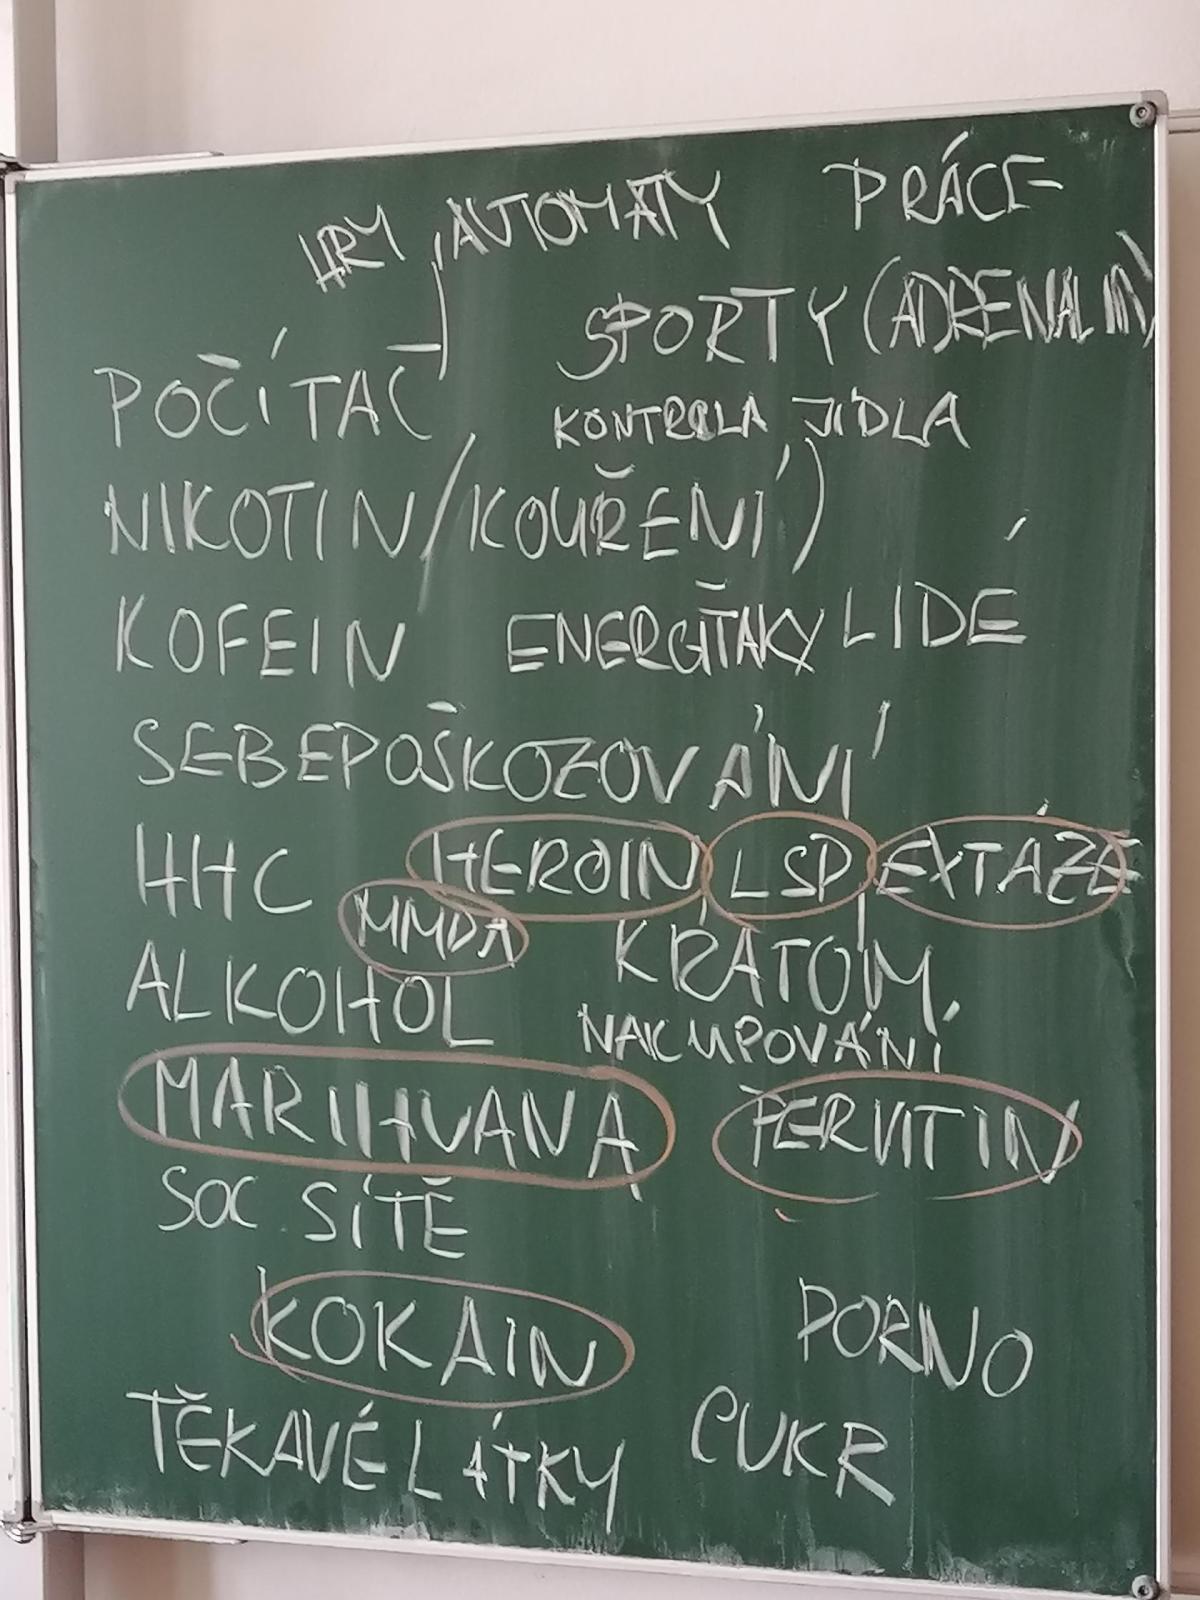 HRY, AUTOMATY PRÁCE
SPORTY (ADRENALIN)
POČÍTAČ
KONTROLA JÍDLA
NIKOTIN/KOUŘENÍ)
KOFEIN ENERGIŤAKY LIDÉ
SEBEPOŠKOZOVÁNÍ
HHC HEROIN LSD EXTÁZE
MMDA KRATOM
ALKOHOL
NAKUPOVÁNÍ
MARIHUANA PERVITIN
SOC SÍTĚ
KOKAIN PORNO
TĚKAVÉ LÁTKY CUKR